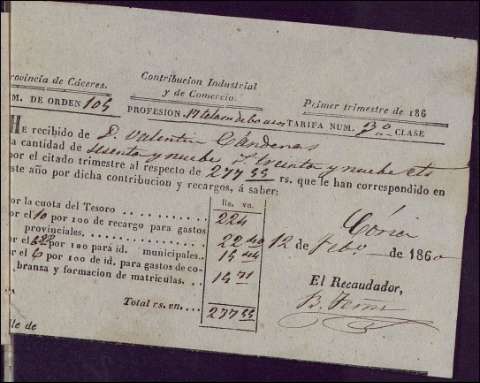 rovincia de Cáceres.
Contribucion Industrial
y de Comercio.
Primer trimestre de 186
M. DE ORDEN 105
PROFESION. TARIFA NUM. CLASE
HE recibido de D. Valentin Cárdenas
a cantidad de sesenta y nueve r. treinta y nueve cts
por el citado trimestre al respecto de 277 55 rs. que le han correspondido en
este año por dicha contribucion y recargos, á saber:
Rs. vn.
por la cuota del Tesoro 224
por el 10 por 100 de recargo para gastos
provinciales. 22 40
por el por 100 para id. municipales. 15 44
por el 6 por 100 de id. para gastos de co-
branza y formacion de matriculas. 15 71
Total rs. vn. 277 55
Cória
12 de Febo. de 1860
El Recaudador,
B.
lle de